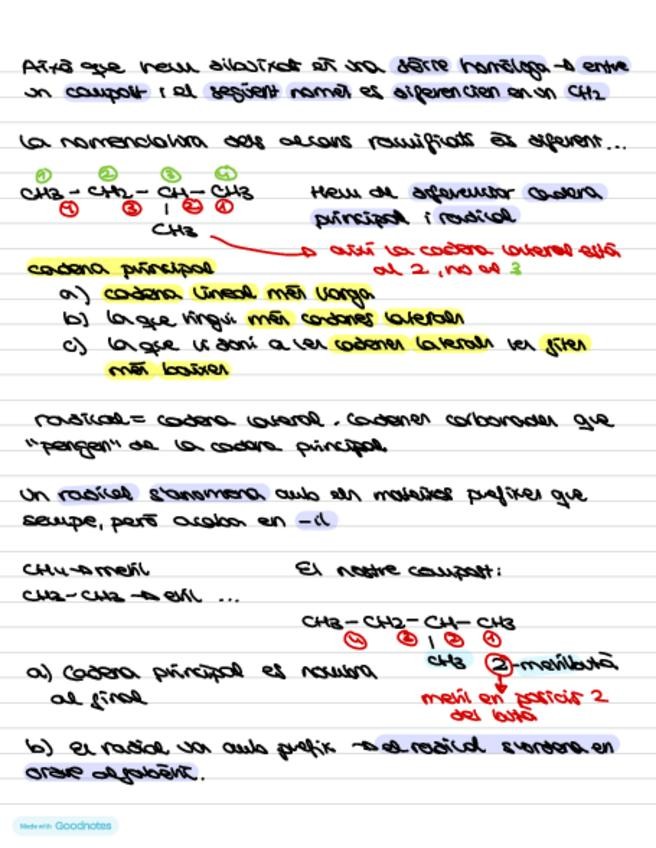 Això que hem dibuixat és una sèrie homòloga → entre
un compost i el següent només es diferencien en un CH2
La nomenclatura dels alcans ramificats és diferent...
① ② ③ ④
CH3 - CH2 - CH - CH3
④ ③ | ② ①
CH3
Hem de diferenciar cadena
principal i radical
→ així la cadena lateral està
al 2, no al 3
cadena principal
a) cadena lineal més llarga
b) la que tingui més cadenes laterals
c) la que li doni a les cadenes laterals les xifres
més baixes
radical = cadena lateral. Cadenes carbonades que
"pengen" de la cadena principal.
Un radical s'anomena amb els mateixos prefixes que
sempre, però acaba en -il
CH4 → metil
CH3-CH2 → etil ...
El nostre compost:
CH3 - CH2 - CH - CH3
④ ③ | ② ①
CH3 2-metilbutà
metil en posició 2
del butà
a) Cadena principal es nombra
al final
b) El radical va amb prefix → el radical s'ordena en
ordre alfabètic.
Made with Goodnotes